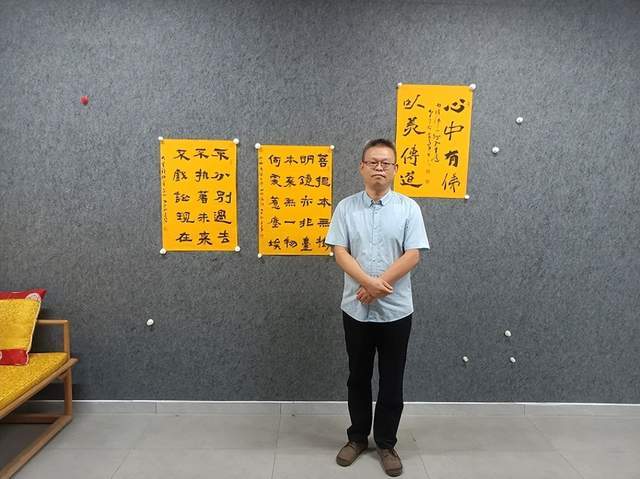 不分別過去
不执著未来
不戲論現在
菩提本無樹
明鏡亦非臺
本来無一物
何處惹塵埃
心中有佛
以美傳道